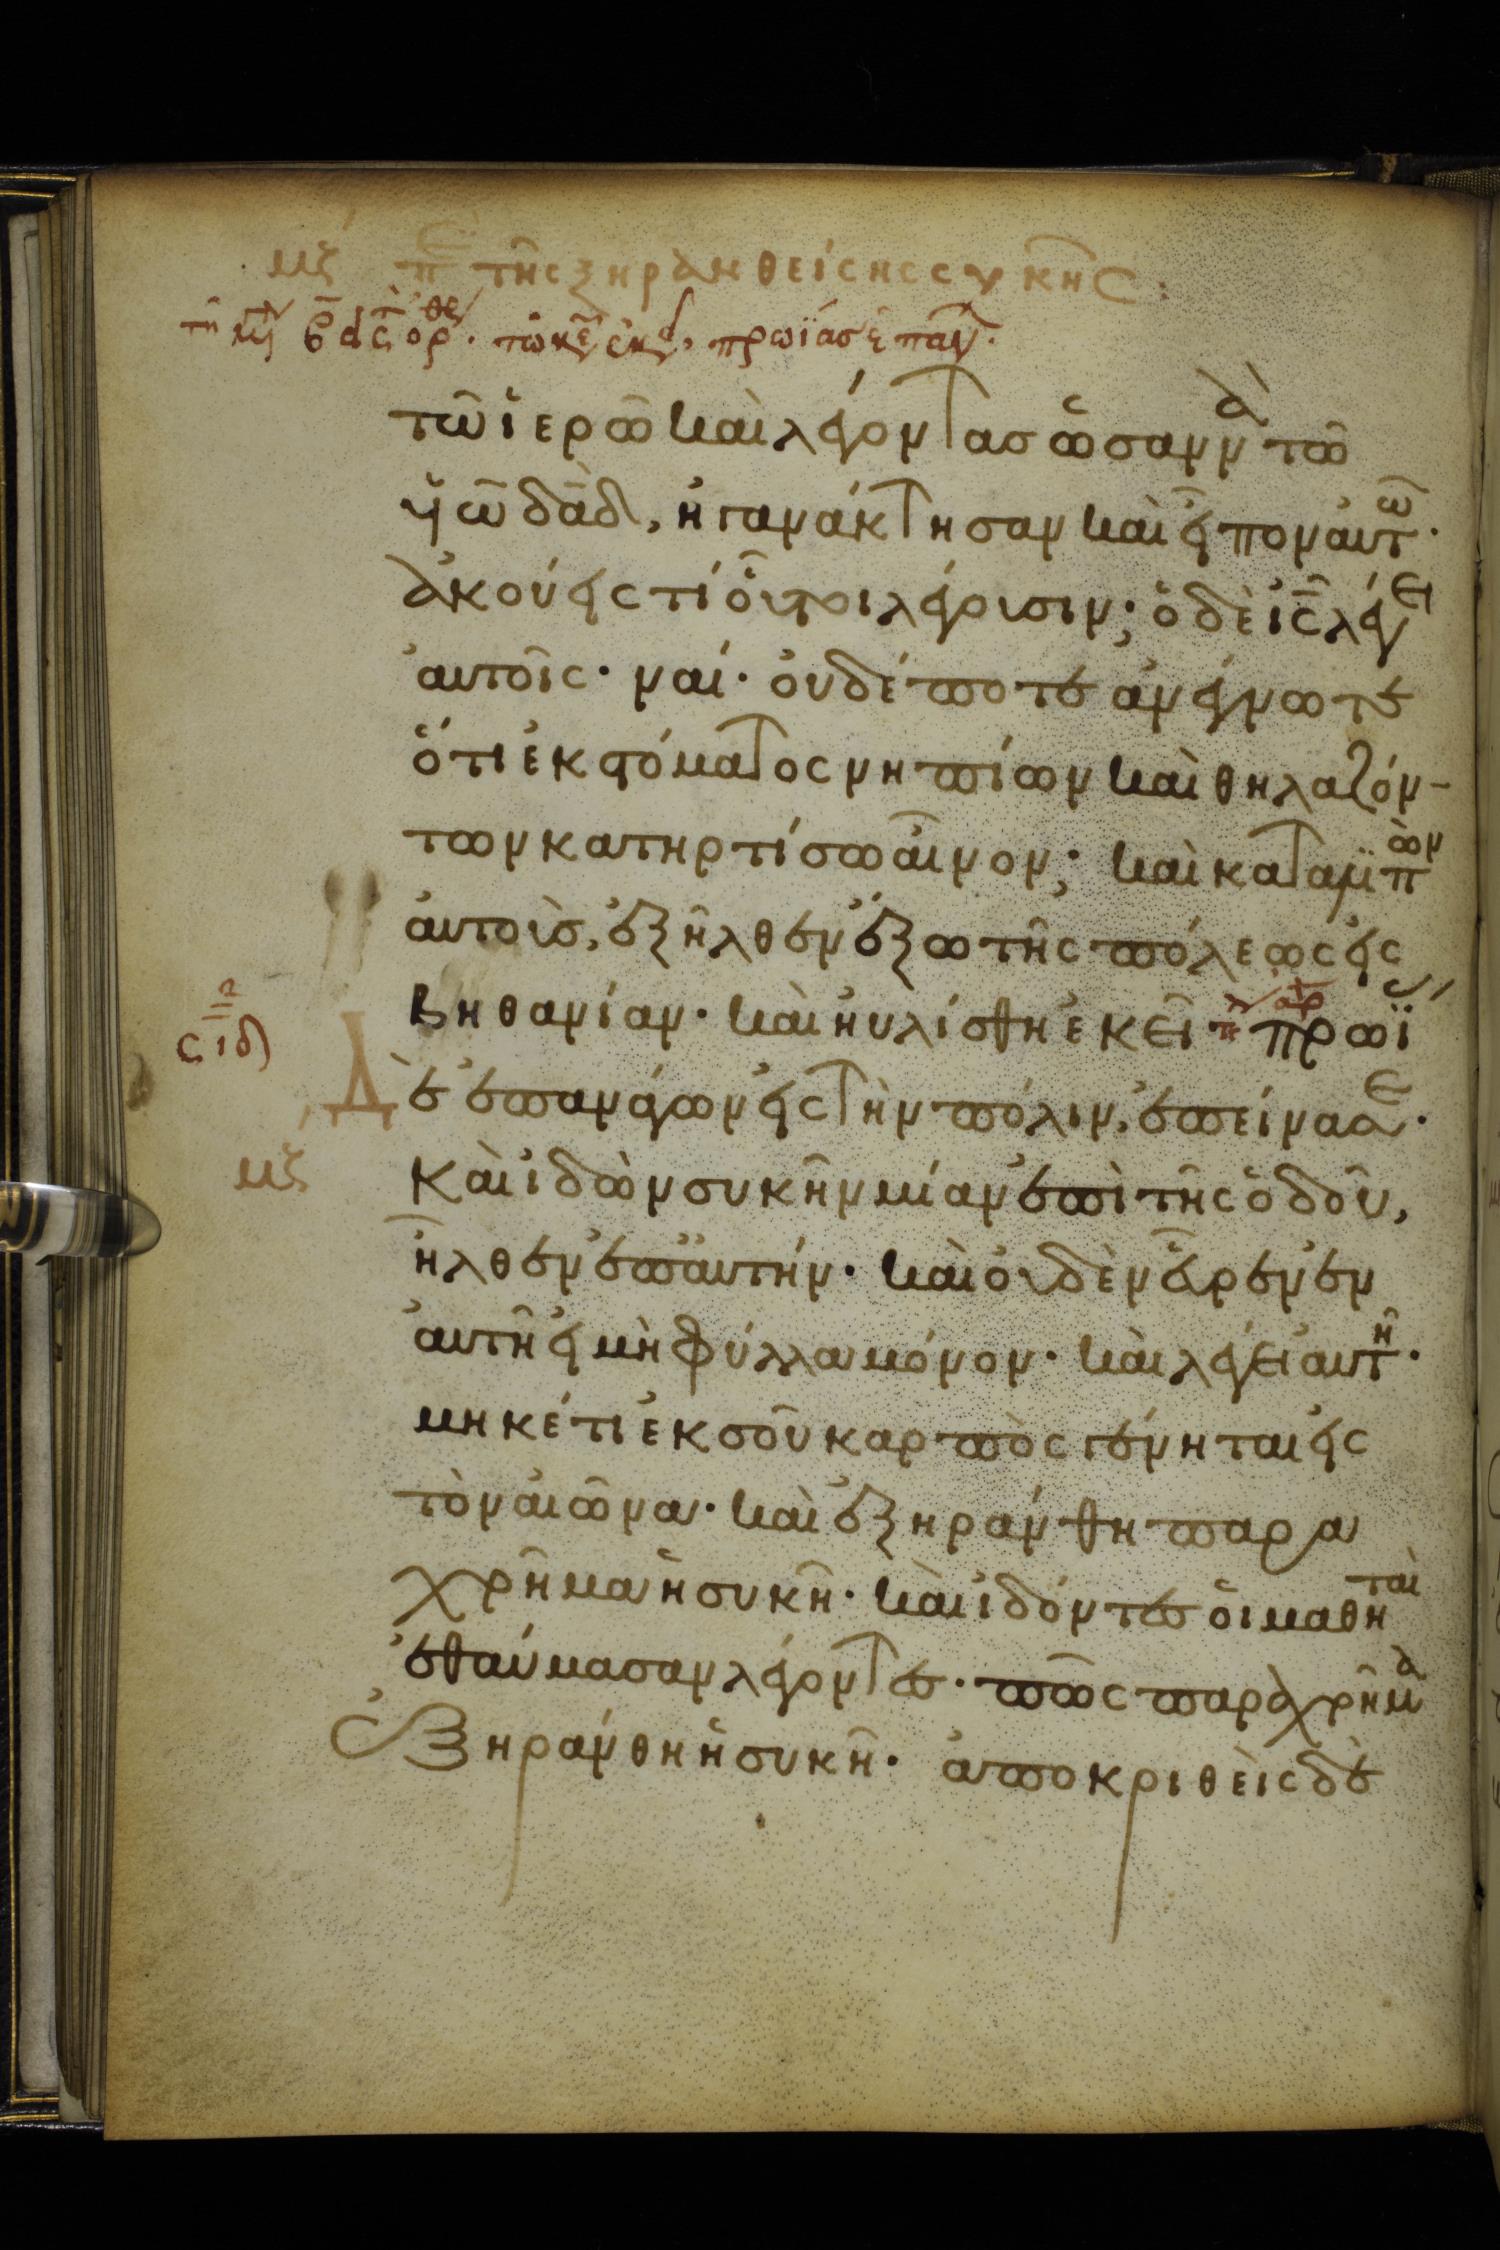 μζ π̅ε̅ τῆς ξηρανθείσης συκῆς:
τῶ ἱερῶ καὶ λέγοντας ὡσαννὰ τῶ
υἱῶ δαδ, ἠγανάκτησαν καὶ εἶπον αὐτῶ·
ἀκούεις τί οὗτοι λέγουσιν; ὁ δὲ ις λέγει
αὐτοῖς· ναί· οὐδέποτε ἀνέγνωτε
ὅτι ἐκ στόματος νηπίων καὶ θηλαζόν-
των κατηρτίσω αἶνον; καὶ καταλιπὼν
αὐτοὺς, ἐξῆλθεν ἔξω τῆς πόλεως εἰς
βηθανίαν· καὶ ηὐλίσθη ἐκεῖ πρωΐ
σιδ
Δὲ ἐπανάγων εἰς τὴν πόλιν, ἐπείνασε·
μζ
Καὶ ἰδὼν συκῆν μίαν ἐπὶ τῆς ὁδοῦ,
ἦλθεν ἐπ αὐτήν· καὶ οὐδὲν εὗρεν ἐν
αὐτῆ εἰ μὴ φύλλα μόνον· καὶ λέγει αὐτῆ·
μηκέτι ἐκ σοῦ καρπὸς γένηται εἰς
τὸν αἰῶνα· καὶ ἐξηράνθη παρα
χρῆμα ἡ συκῆ· καὶ ἰδόντες οἱ μαθηταὶ
ἐθαύμασαν λέγοντες· πῶς παραχρῆμα
ἐξηράνθη ἡ συκῆ· ἀποκριθεὶς δὲ